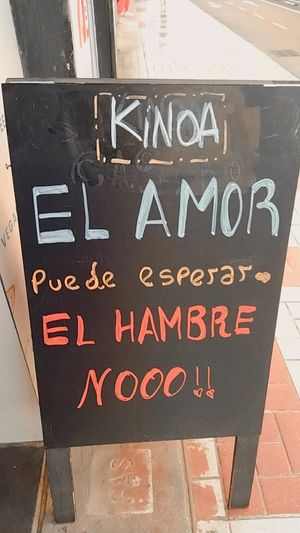 KiNOA
EL AMOR
Puede esperar
EL HAMBRE
NOOO!!
GAS